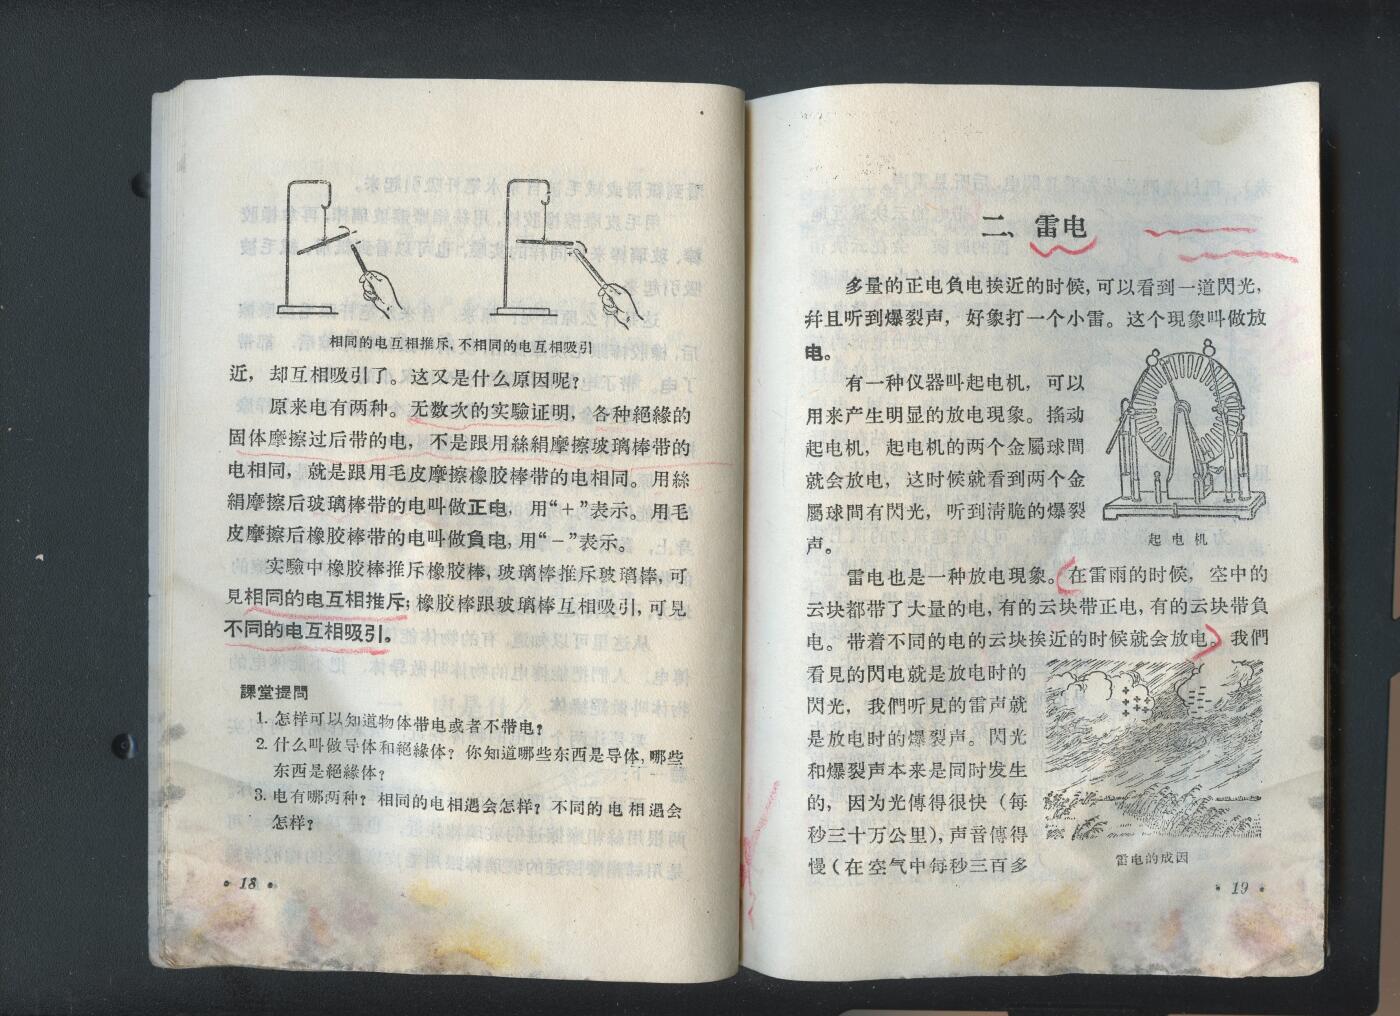 相同的电互相推斥,不相同的电互相吸引
近，却互相吸引了。这又是什么原因呢？
原来电有两种。无数次的实驗証明，各种絕緣的
固体摩擦过后带的电，不是跟用絲絹摩擦玻璃棒带的
电相同，就是跟用毛皮摩擦橡胶棒带的电相同。用絲
絹摩擦后玻璃棒带的电叫做正电，用“＋”表示。用毛
皮摩擦后橡胶棒带的电叫做負电，用“－”表示。
实驗中橡胶棒推斥橡胶棒，玻璃棒推斥玻璃棒，可
見相同的电互相推斥；橡胶棒跟玻璃棒互相吸引，可見
不同的电互相吸引。
課堂提問
1. 怎样可以知道物体带电或者不带电？
2. 什么叫做导体和絕緣体？你知道哪些东西是导体，哪些
东西是絕緣体？
3. 电有哪两种？相同的电相遇会怎样？不同的电相遇会
怎样？
• 18 •
二、雷电
多量的正电負电挨近的时候，可以看到一道閃光，
幷且听到爆裂声，好象打一个小雷。这个現象叫做放
电。
有一种仪器叫起电机，可以
用来产生明显的放电現象。搖动
起电机，起电机的两个金屬球間
就会放电，这时候就看到两个金
屬球間有閃光，听到清脆的爆裂
声。
起电机
雷电也是一种放电現象。在雷雨的时候，空中的
云块都带了大量的电，有的云块带正电，有的云块带負
电。带着不同的电的云块挨近的时候就会放电。我們
看見的閃电就是放电时的
閃光，我們听見的雷声就
是放电时的爆裂声。閃光
和爆裂声本来是同时发生
的，因为光傳得很快（每
秒三十万公里），声音傳得
慢（在空气中每秒三百多
雷电的成因
• 19 •